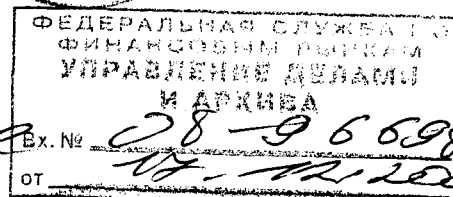 ФЕДЕРАЛЬНАЯ СЛУЖБА ПО
ФИНАНСОВЫМ РЫНКАМ
УПРАВЛЕНИЕ ДЕЛАМИ
И АРХИВА
Вх. № 08-96698
от 17.12.200